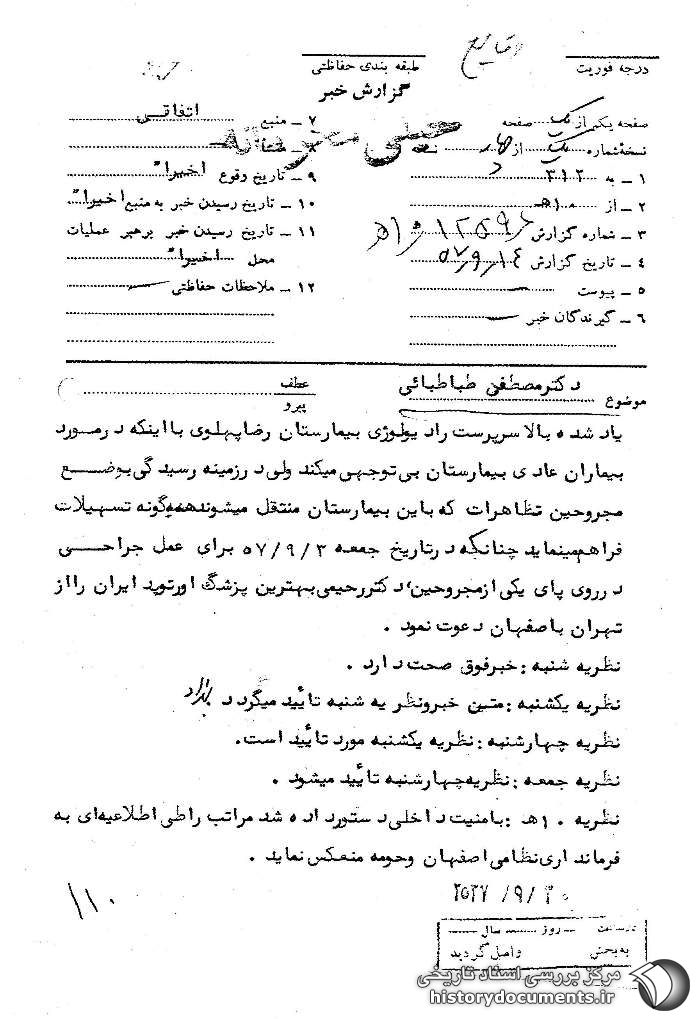 وقایع
درجه فوریت
طبقه بندی حفاظتی
گزارش خبر
خیلی محرمانه
صفحه یکم از یک صفحه
نسخهٔ شماره یک از چهار نسخه
۱ ـ به ۳۱۲
۲ ـ از ۱۰هـ
۳ ـ شماره گزارش
۴ ـ تاریخ گزارش ۵۷٫۹٫۱۴
۵ ـ پیوست ـ
۶ ـ گیرندگان خبر ـ
۷ ـ منبع اتفاقی
۸ ـ منشأ
۹ ـ تاریخ وقوع اخیراً
۱۰ ـ تاریخ رسیدن خبر به منبع اخیراً
۱۱ ـ تاریخ رسیدن خبر برهبر عملیات
محل اخیراً
۱۲ ـ ملاحظات حفاظتی ـ
موضوع دکتر مصطفی طباطبائی
عطف
پیرو
یاد شده بالا سرپرست رادیولوژی بیمارستان رضا پهلوی با اینکه در مورد
بیماران عادی بیمارستان بی توجهی میکند ولی در زمینه رسیدگی بوضع
مجروحین تظاهرات که باین بیمارستان منتقل میشوند همه گونه تسهیلات
فراهم مینماید چنانکه در تاریخ جمعه ۵۷/۹/۳ برای عمل جراحی
در روی پای یکی از مجروحین، دکتر رحیمی بهترین پزشگ اورتوپد ایران را از
تهران باصفهان دعوت نمود .
نظریه شنبه : خبر فوق صحت دارد .
نظریه یکشنبه : متن خبر و نظریه شنبه تأیید میگردد
نظریه چهارشنبه : نظریه یکشنبه مورد تأیید است.
نظریه جمعه : نظریه چهارشنبه تأیید میشود .
نظریه ۱۰هـ : بامنیت داخلی دستور داده شد مراتب را طی اطلاعیه‌ای به
فرمانداری نظامی اصفهان وحومه منعکس نماید .
۱۱۰
۲۵۳۷/۹/۲۰
در ساعت ـ روز ـ سال
به بخش واصل گردید
مرکز بررسی اسناد تاریخی
historydocuments.ir